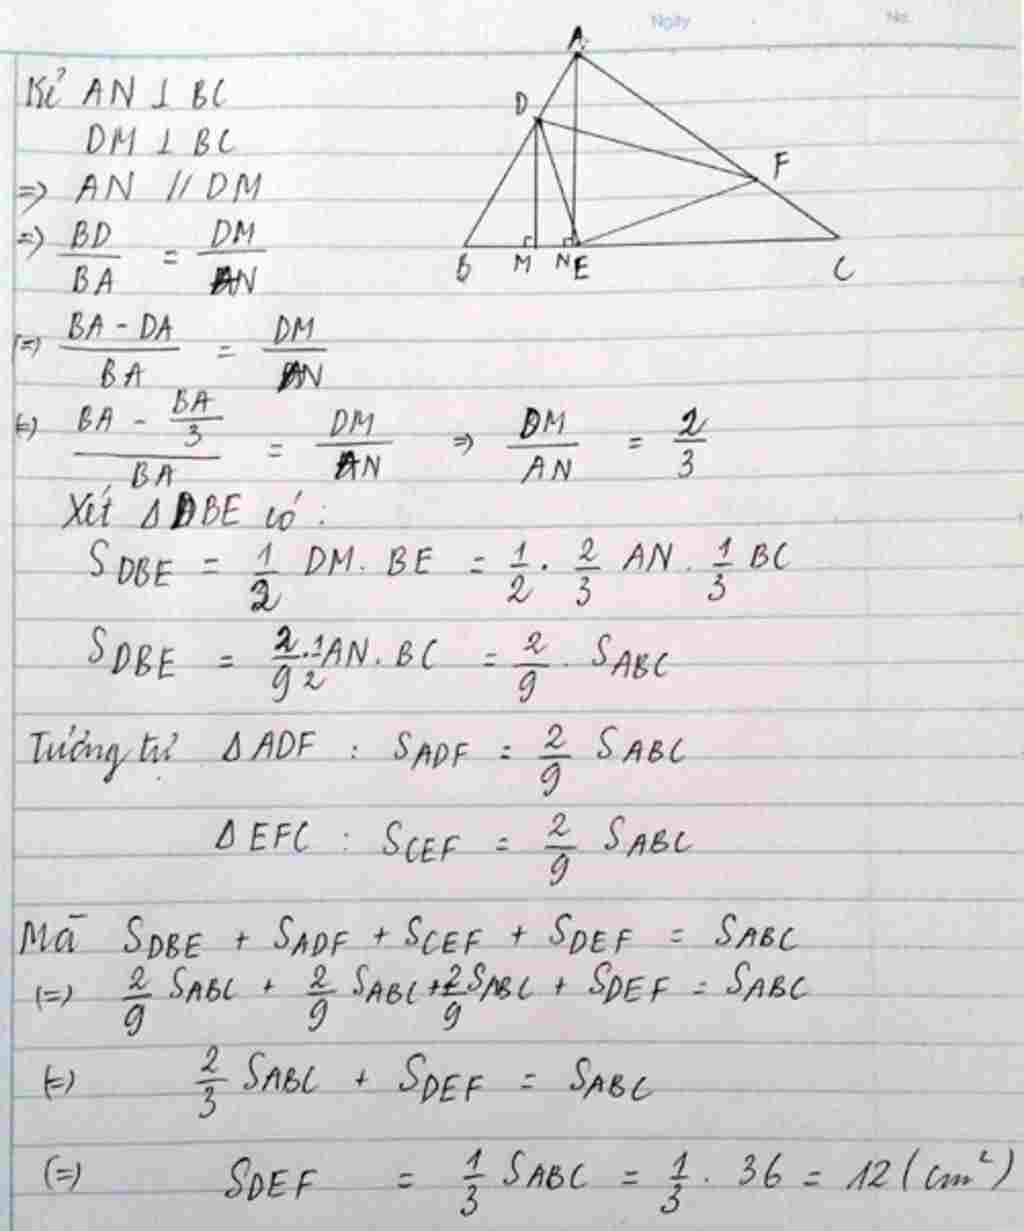 Ngày No.
Kẻ AN ⊥ BC
DM ⊥ BC
=> AN // DM
=> BD/BA = DM/AN
(=) (BA - DA)/BA = DM/AN
(=) (BA - BA/3)/BA = DM/AN => DM/AN = 2/3
Xét Δ DBE có :
S DBE = 1/2 DM. BE = 1/2 . 2/3 AN . 1/3 BC
S DBE = 2/9 . 1/2 AN . BC = 2/9 . S ABC
Tương tự Δ ADF : S ADF = 2/9 S ABC
Δ EFC : S CEF = 2/9 S ABC
Mà S DBE + S ADF + S CEF + S DEF = S ABC
(=) 2/9 S ABC + 2/9 S ABC + 2/9 S ABC + S DEF = S ABC
(=) 2/3 S ABC + S DEF = S ABC
(=) S DEF = 1/3 S ABC = 1/3 . 36 = 12 (cm²)
A
D
F
B M N E C